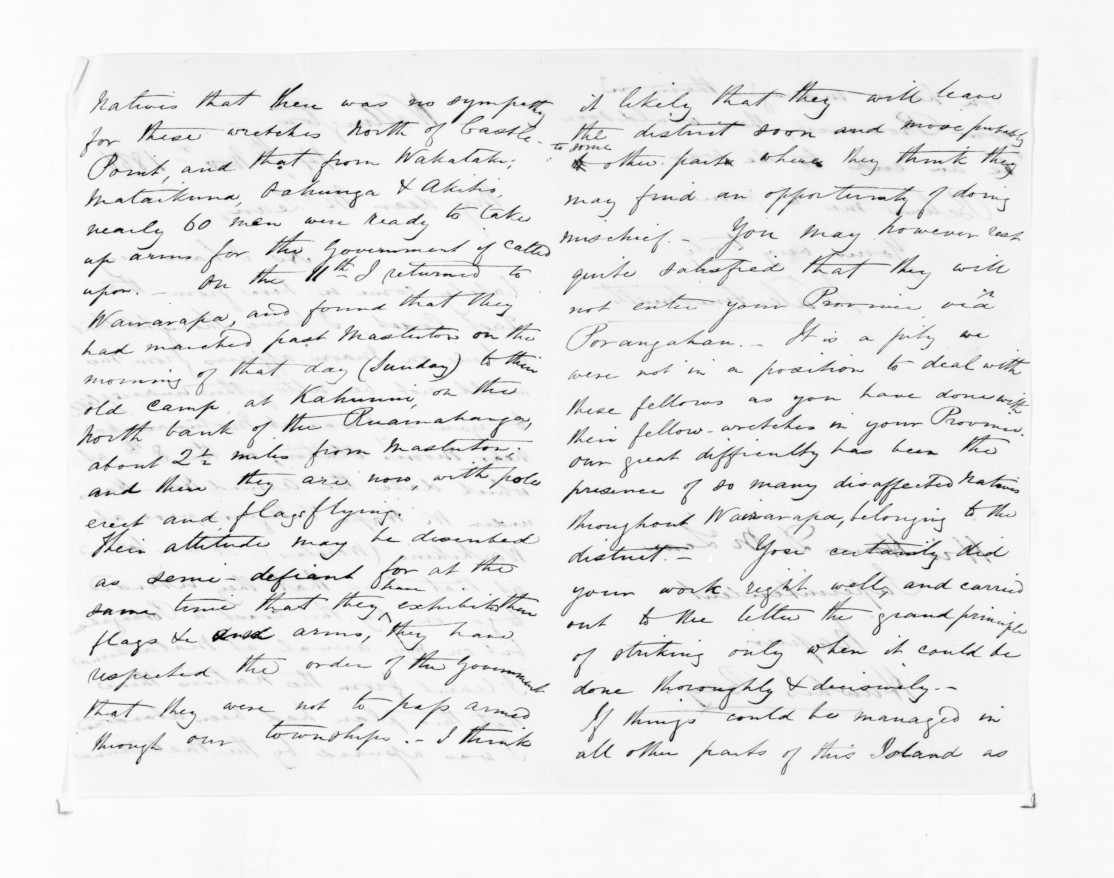 Natives that there was no sympathy
for these wretches North of Castle-
Point, and that from Wakataki,
Mataikuna, Oahunga & Akitio
nearly 60 men were ready to take
up arms for the Government if called
upon. - On the 11th I returned to
Wairarapa, and found that they
had marched past Masterton on the
morning of that day (Sunday) to their
old camp at Kahumui, on the
North bank of the Ruamahanga,
about 2½ miles from Masterton,
and there they are now, with pole
erect and flags flying.
Their attitude may be described
as semi-defiant for at the
same time that they have exhibited their
flags & arms, they have
respected the order of the Government
that they were not to pass armed
through our townships. - I think
it likely that they will leave
the district soon and move probably
to some other part where they think they
may find an opportunity of doing
mischief. - You may however rest
quite satisfied that they will
not enter your Province via
Porangahau. - It is a pity we
were not in a position to deal with
these fellows as you have done with
their fellow-wretches in your Province.
Our great difficulty has been the
presence of so many disaffected Natives
throughout Wairarapa, belonging to the
district. - You certainly did
your work right well, and carried
out to the letter the grand principle
of striking only when it could be
done thoroughly & decisively. -
If things could be managed in
all other parts of this Island as